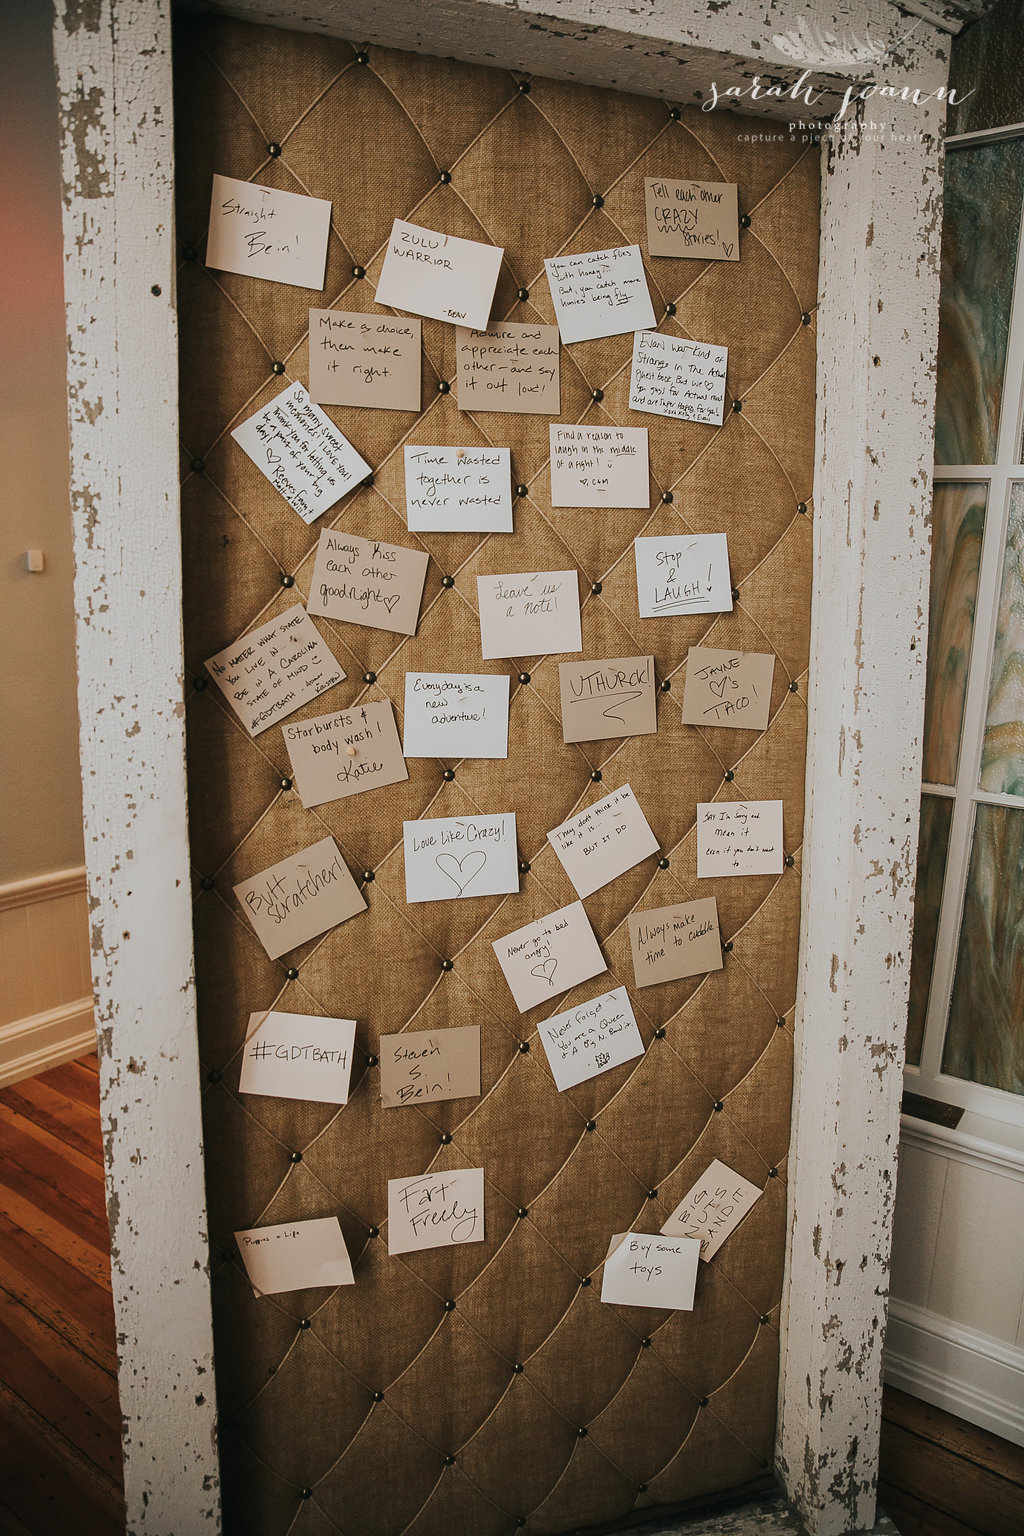 sarah joann
photography
capture a piece of your heart
Straight
Bein!
ZULU!
WARRIOR
-BEAV
You can catch flies
with honey...
But, you catch more
honies being fly
Tell each other
CRAZY
stories!
Make a choice,
then make
it right.
Admire and
appreciate each
other - and say
it out loud!
Evan was kind of
Strange in The Actual
guest book, But we
You guys for Actual real
and are super Happy for You!
xoxo Kelly & Evan
So many sweet
memories! I LOVE YOU!
Thank you for letting us
be a part of your big
day!
Reeves Fam
Time wasted
together is
never wasted
Find a reason to
laugh in the middle
of a fight!
C&M
Always Kiss
each other
goodnight
Leave us
a note!
Stop
&
LAUGH!
NO MATER WHAT STATE
YOU LIVE IN...
BE IN A CAROLINA
STATE OF MIND
#GDTBATH - Adam
Kristen
Everyday is a
new
adventure!
UTHURCK!
JAYNE
'S
TACO!
Starbursts &
body wash!
Katie
Love Like Crazy!
They don't think it be
like it is...
BUT IT DO
Say I'm Sorry and
mean it
even if you don't want
to...
Butt
Scratcher!
Never go to bed
angry!
Always make
time to cuddle
#GDTBATH
Steven
S.
Bein!
Never Forget
You are a Queen
& A Big N. Band it.
Fart
Freely
Puppies = Life
BIG
NUTS
BANDIT
Buy some
toys